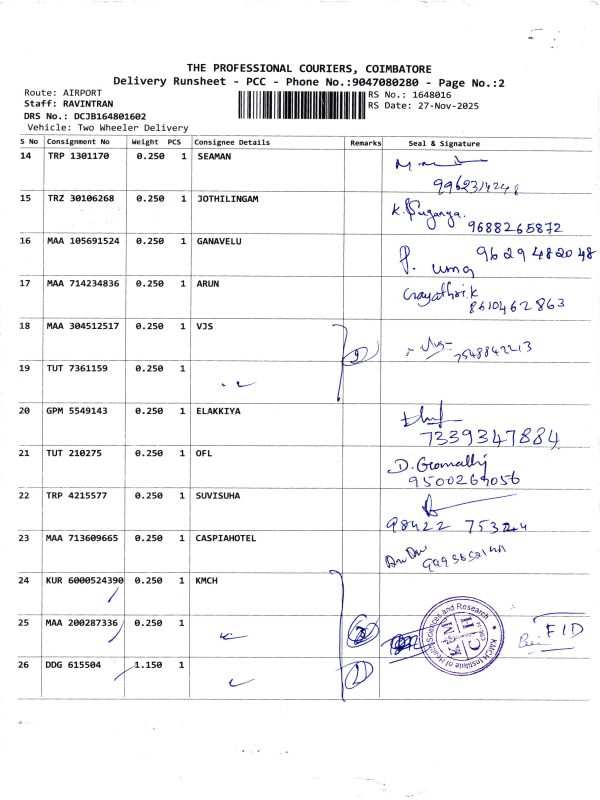 THE PROFESSIONAL COURIERS, COIMBATORE
Delivery Runsheet - PCC - Phone No.:9047080280 - Page No.:2
Route: AIRPORT
RS No.: 1648016
Staff: RAVINTRAN
RS Date: 27-Nov-2025
DRS No.: DCJB164801602
Vehicle: Two Wheeler Delivery
S No Consignment No Weight PCS Consignee Details Remarks Seal & Signature
14 TRP 1301170 0.250 1 SEAMAN
15 TRZ 30106268 0.250 1 JOTHILINGAM
K. Suganga.
9688265872
16 MAA 105691524 0.250 1 GANAVELU
9629482048
P. uma
17 MAA 714234836 0.250 1 ARUN
Gayathri.k
8610462863
18 MAA 304512517 0.250 1 VJS
2
7548842213
19 TUT 7361159 0.250 1
20 GPM 5549143 0.250 1 ELAKKIYA
7339347884
21 TUT 210275 0.250 1 OFL
D. Gomathj
9500269056
22 TRP 4215577 0.250 1 SUVISUHA
98422
23 MAA 713609665 0.250 1 CASPIAHOTEL
24 KUR 6000524390 0.250 1 KMCH
25 MAA 200287336 0.250 1
KMCH Institute of Health Sciences and Research
FID
26 DDG 615504 1.150 1